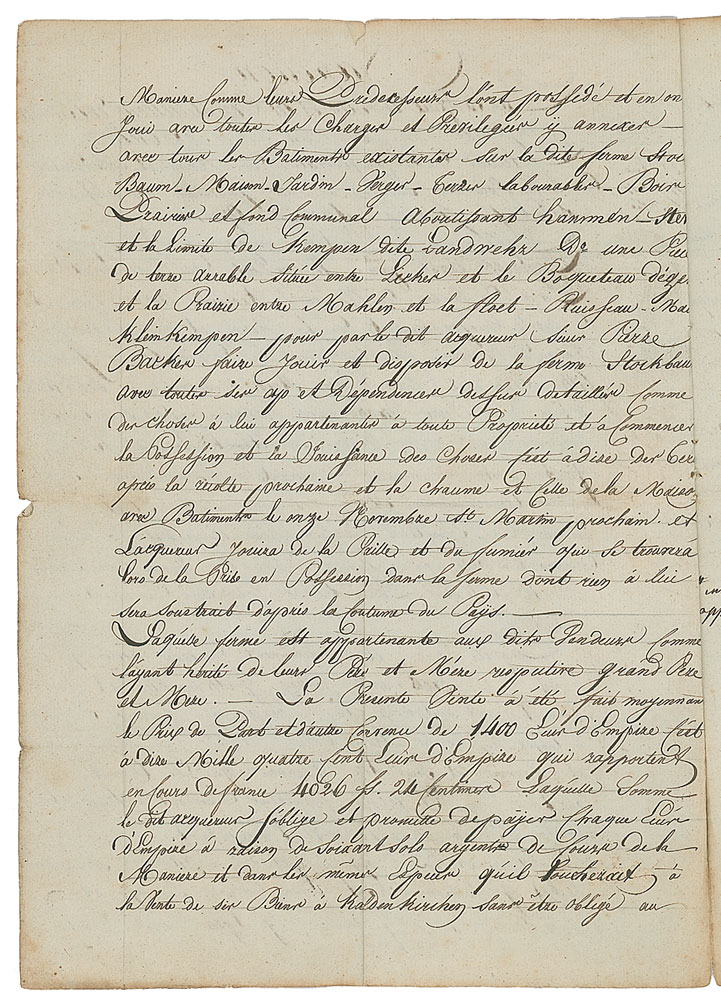 Maniere Comme leurs Predecesseurs l'ont possedé et en on
Joui avec toutes les Charges et Privilegies ÿ annexes —
avec tous les Batiments existantes sur la dite ferme Stoc
Baum - Maison - Jardin - Verger - Terres labourables - Bois
Prairies et fond Communal aboutissant hammen -
et la Limite de Kempen dite Landwehr De une Piec
de terre arrable sitúée entre Lecker et le Boqueteau
et la Prairie entre Mahlen et la floet - Ruisseau -
Kleinkempen — pour par le dit acquereur Sieur Pierre
Backer faire Jouir et disposer de la ferme Stockbau
avec toutes ses ap et Dépendences dessus detaillés comme
des choses à lui appartenantes à toute Propriete et à Commencer
la Possession et la Jouissance des Choses C'est à dire des Ter
après la récolte prochaine et la chaume et Celle de la Maiso
avec Batiments le onze Novembre St. Martin prochain. et
L'acquereur Jouira de la Paille et du fumier qui se trouvera
lors de la Prise en Possession dans la ferme dont rien à lui
sera soustrait d'après la Coutume du Paÿs. —
Laquelle ferme est appartenante aux dits Vendeurs Comme
l'ayant hérité de leurs Pére et Mére respective grand Pere
et Mere. — La Presente Vente à été fait moyennan
le Prix de Part et d'autre Convenu de 1400 Ecus d'Empire C'est
à dire Mille quatre Cent Ecus d'Empire qui rapportent
en Cours de france 4026 fs. 24 Centimes Laquelle Somme
le dit acquereur s'oblige et promette de païer Chaque Ecus
d'Empire à raison de Soixant Sols argents de Cours de la
Maniere et dans les mêmes Especes qu'il toucherait à
la Vente de ses Biens à Kaldenkirchen sans être obligé au